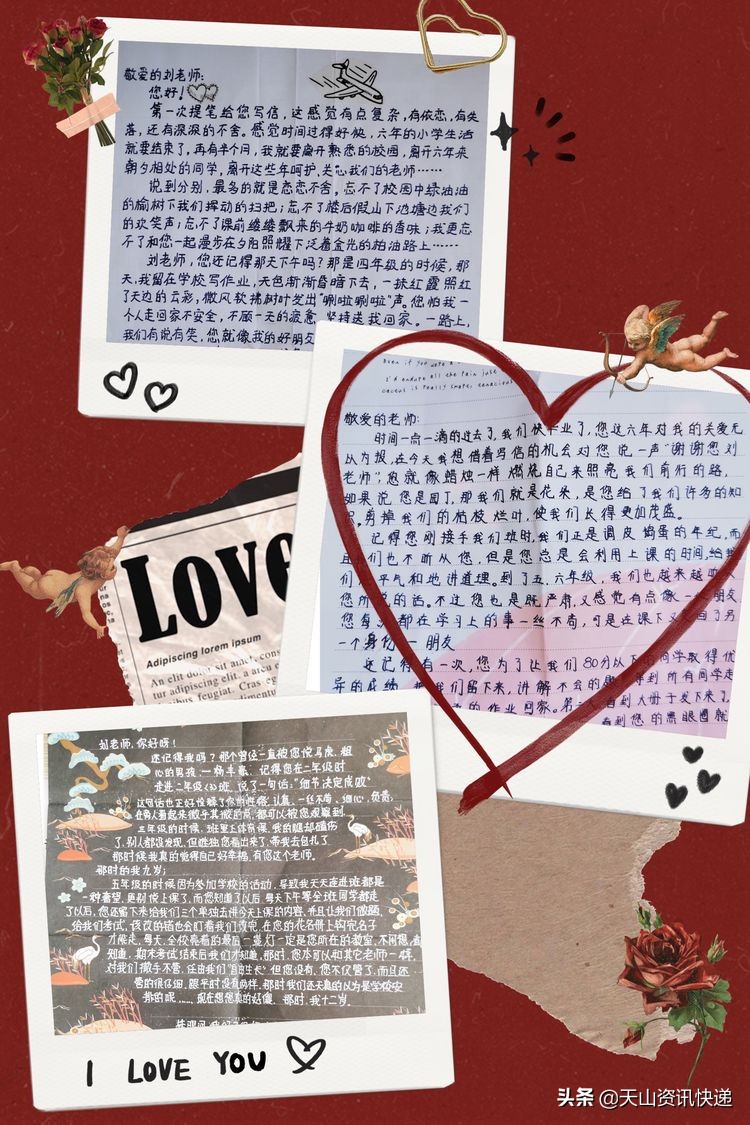 敬爱的刘老师:
您好!
第一次提笔给您写信,这感觉有点复杂,有依恋,有失
落,还有深深的不舍。感觉时间过得好快,六年的小学生活
就要结束了,再有半个月,我就要离开熟悉的校园,离开六年来
朝夕相处的同学,离开这些年呵护、关心我们的老师……
说到分别,最多的就是恋恋不舍。忘不了校园中绿油油
的榆树下我们挥动的扫把;忘不了楼后假山下池塘边我们
的欢笑声;忘不了课前缕缕飘来的牛奶咖啡的香味;我更忘
不了和您一起漫步在夕阳照耀下泛着金光的柏油路上……
刘老师,您还记得那天下午吗?那是四年级的时候,那
天,我留在学校写作业,天色渐渐昏暗下去,一抹红霞照红
了天边的云彩,微风轻拂树叶发出"唰啦唰啦"声。您怕我一
个人走回家不安全,不顾一天的疲惫,坚持送我回家。一路上,
我们有说有笑,您就像我的好朋友
敬爱的老师:
时间一点一滴的过去了,我们快毕业了,您这六年对我的关爱无
以为报,在今天我想借着写信的机会对您说一声"谢谢您刘
老师",您就像蜡烛一样燃烧自己来照亮我们前行的路,
如果说您是园丁,那我们就是花朵,是您给了我们许多的知
识,剪掉我们的枯枝烂叶,使我们长得更加茂盛。
记得您刚接手我们班时,我们正是调皮捣蛋的年纪,而
且我们也不听从您,但是您总是会利用上课的时间,给我
们心平气和地讲道理。到了五、六年级,我们也越来越
您所说的话。不过您也是既严肃,又感觉有点像一个朋友
您每天都在学习上的事一丝不苟,可是在课下又变回了另
一个身份——朋友
还记得有一次,您为了让我们80分以下的同学取得优
异的成绩,把我们留下来,讲解不会的题,等到所有同学走
的作业回家。第二天,看到大册子发下来了,
看到您的黑眼圈就
Love
Adipiscing lorem ipsum
An elit dolor sit amet, cons
tur adipiscing elit, a erat
bibus feugiat. Cras eg
dimentu
刘老师,你好呀!
还记得我吗?那个曾经一直被您说马虎、粗
心的男孩,一杨丰嘉。记得您在二年级时
走进二年级(4)班,说了一句话:"细节决定成败"
这句话也正好诠释了你的性格:认真、一丝不苟、细心、负责,
在别人看起来微乎其微的点,都可以被您观察到。
三年级的时候,班里上体育课,我的腿却磕伤
了,别人都没发现,但唯独您看出来了,带我去包扎了
那时候我真的觉得自己好幸福,有您这个老师。
那时的我九岁;
五年级的时候因为参加学校的活动,导致我天天连进班都是
一种奢望,更别说上课了,而您知道了以后,每天下午等全班同学都走
了以后,您还留下来给我们三个单独去讲今天上课的内容,并且让我们做题,
给我们考试,该改的错也会盯着我们改完,在您的花名册上钩完名子
才能走,每天,全校亮着的最后一盏灯一定是您所在的教室,不用想,都
知道,期末考试结束后我们才知道,那时,您本可以和其它老师一样,
对我们撒手不管,任由我们"自由生长"但您没有,您不仅管了,而且还
管的很仔细,跟平时没有两样,那时我们还天真的以为是学校安
排的呢……现在想想真的好傻,那时,我十二岁。
I LOVE YOU
头条 @天山资讯快递